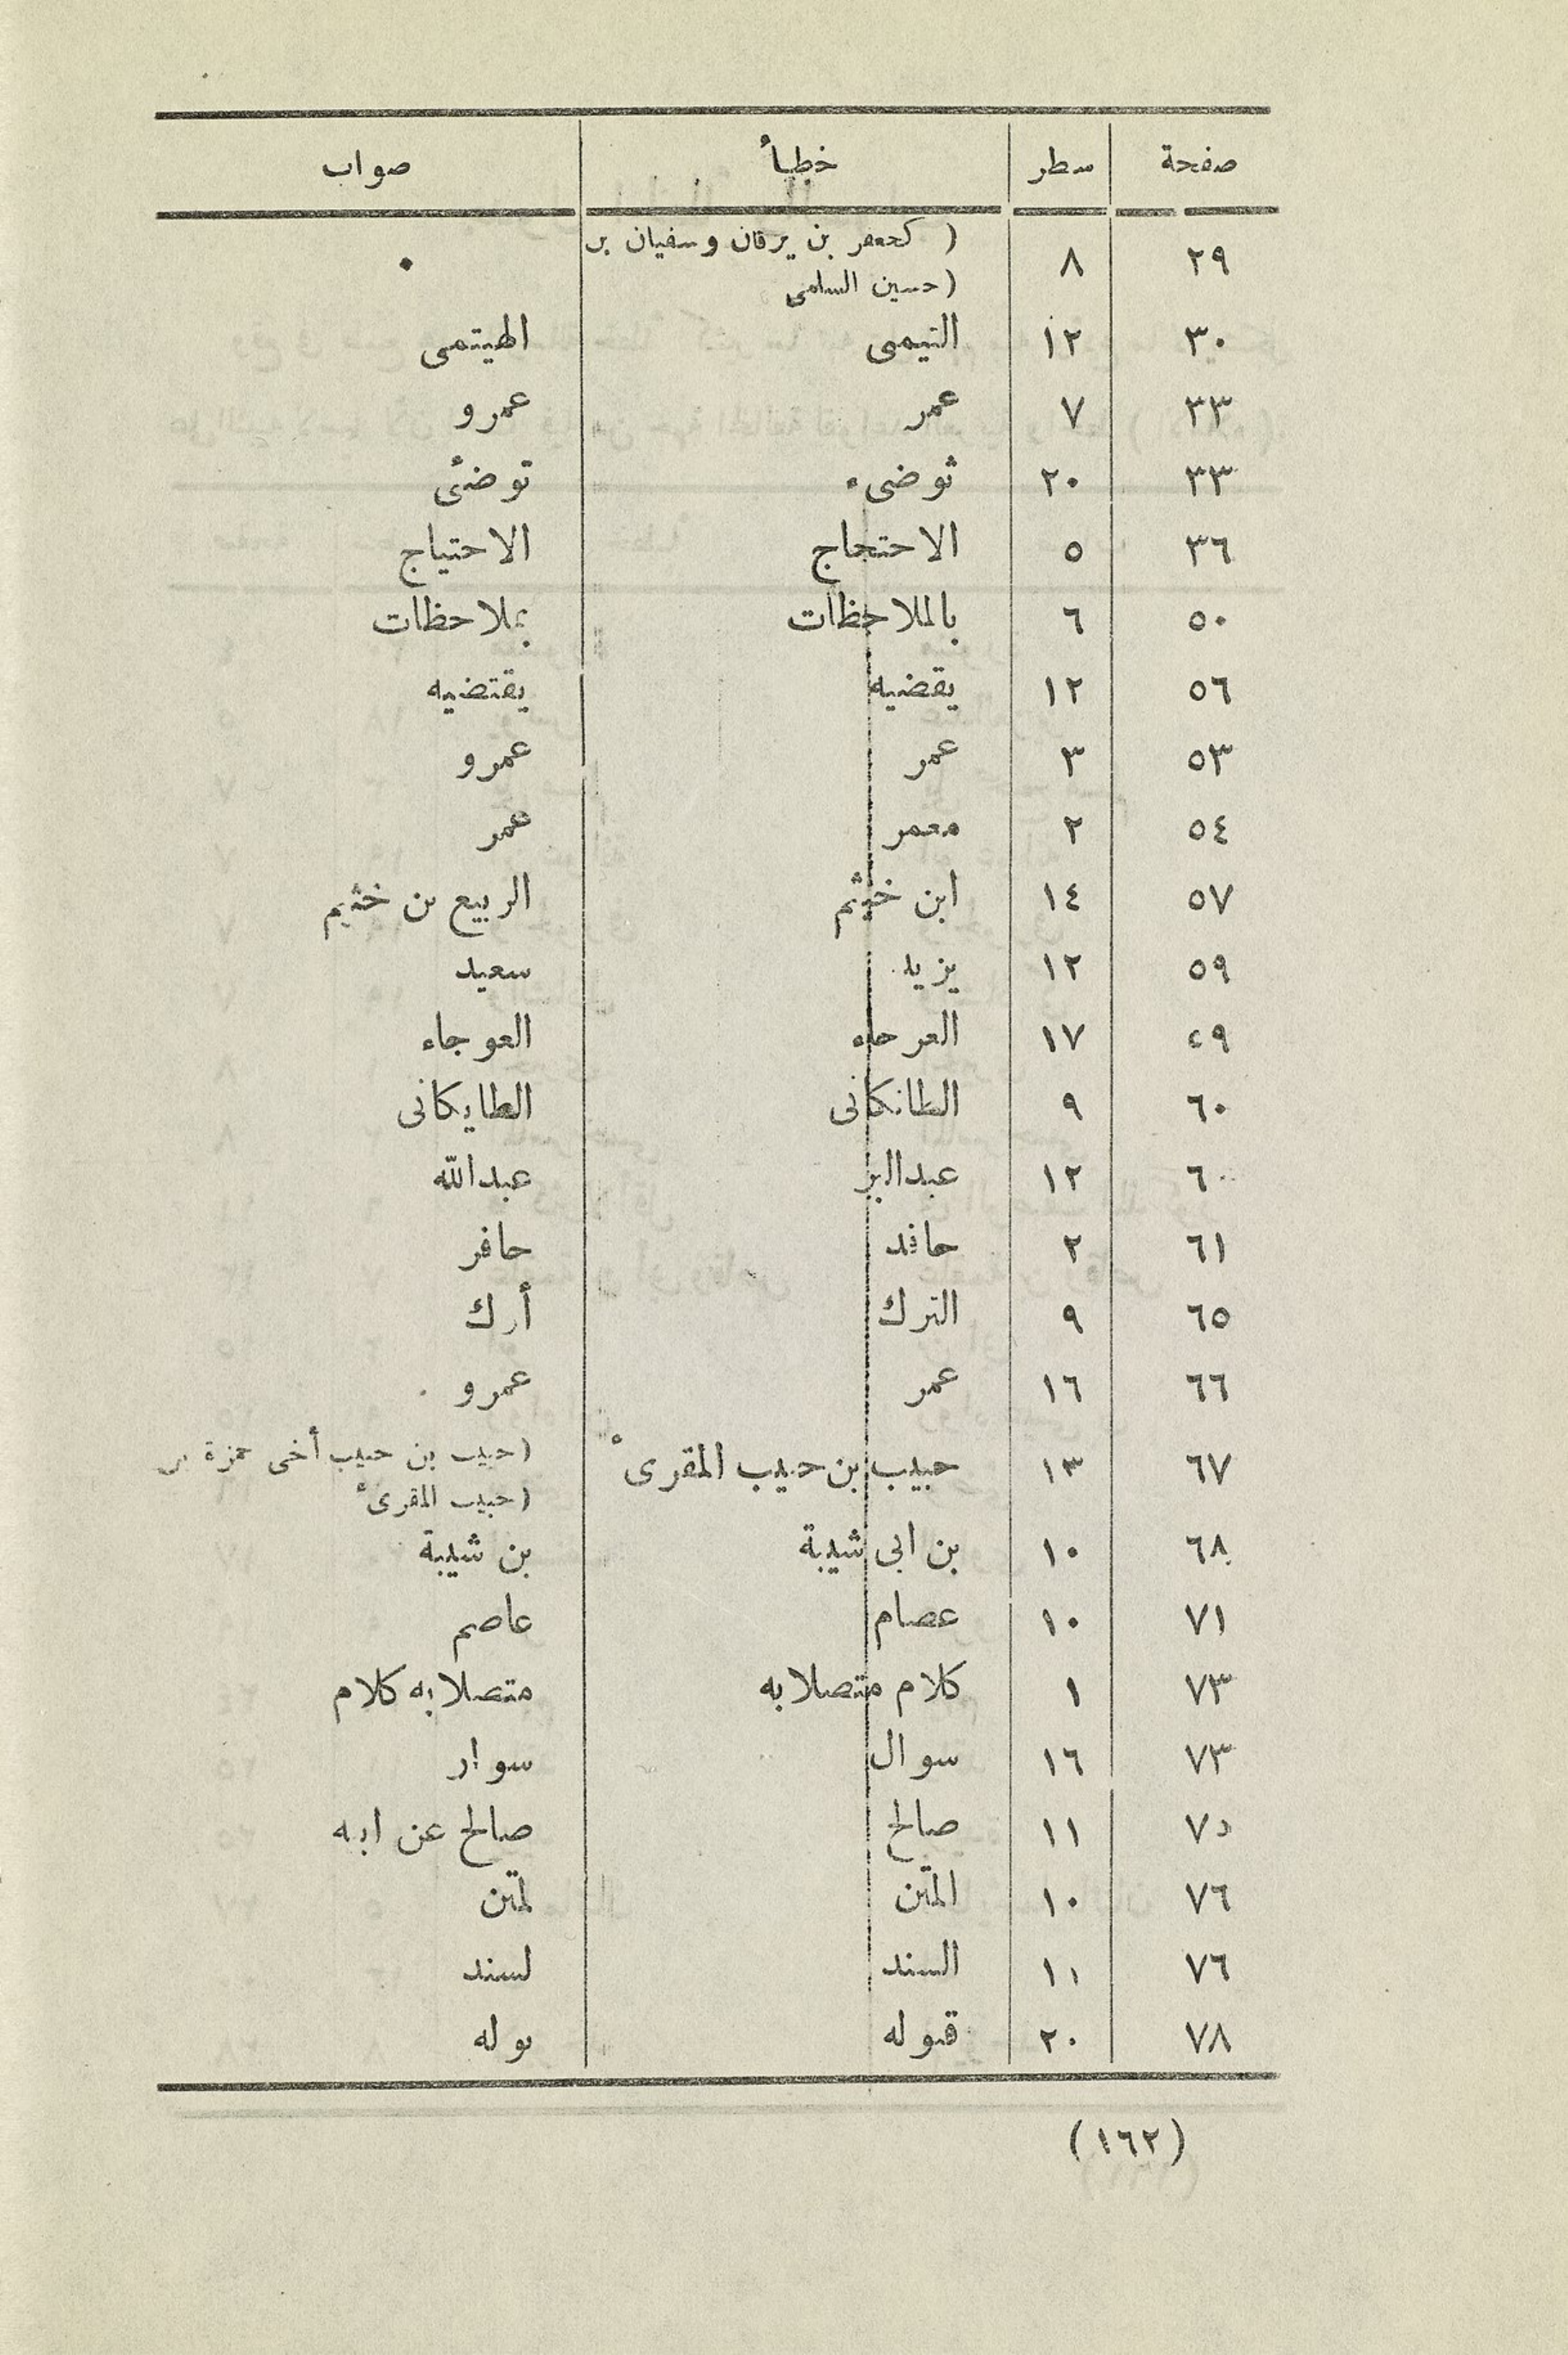 صفحة سطر خطأ صواب
٢٩ ٨ ( كجعفر بن برقان وسفيان بن •
( حسين السلمى
٣٠ ١٢ التيمى الهيتمى
٣٣ ٧ عمر عمرو
٣٣ ٢٠ توضىء توضئ
٣٦ ٥ الاحتجاج الاحتياج
٥٠ ٦ بالملاحظات بملاحظات
٥٦ ١٢ يقضيه يقتضيه
٥٣ ٣ عمر عمرو
٥٤ ٢ معمر عمر
٥٧ ١٤ ابن خثيم الربيع بن خثيم
٥٩ ١٢ يزيد سعيد
٤٩ ١٧ العرجاء العوجاء
٦٠ ٩ الطانكانى الطايكانى
٦٠ ١٢ عبدالبر عبدالله
٦١ ٢ حافد حافر
٦٥ ٩ الترك أرك
٦٦ ١٦ عمر عمرو
٦٧ ١٣ حبيب بن حبيب المقرىء ( حبيب بن حبيب أخى حمزة بن
( حبيب المقرىء
٦٨ ١٠ بن ابى شيبة بن شيبة
٧١ ١٠ عصام عاصم
٧٣ ١ كلام متصلا به متصلا به كلام
٧٣ ١٦ سوال سوار
٧٥ ١١ صالح صالح عن ابيه
٧٦ ١٠ المتن لمتن
٧٦ ١١ السند لسند
٧٨ ٢٠ قبوله بوله
( ١٦٢ )